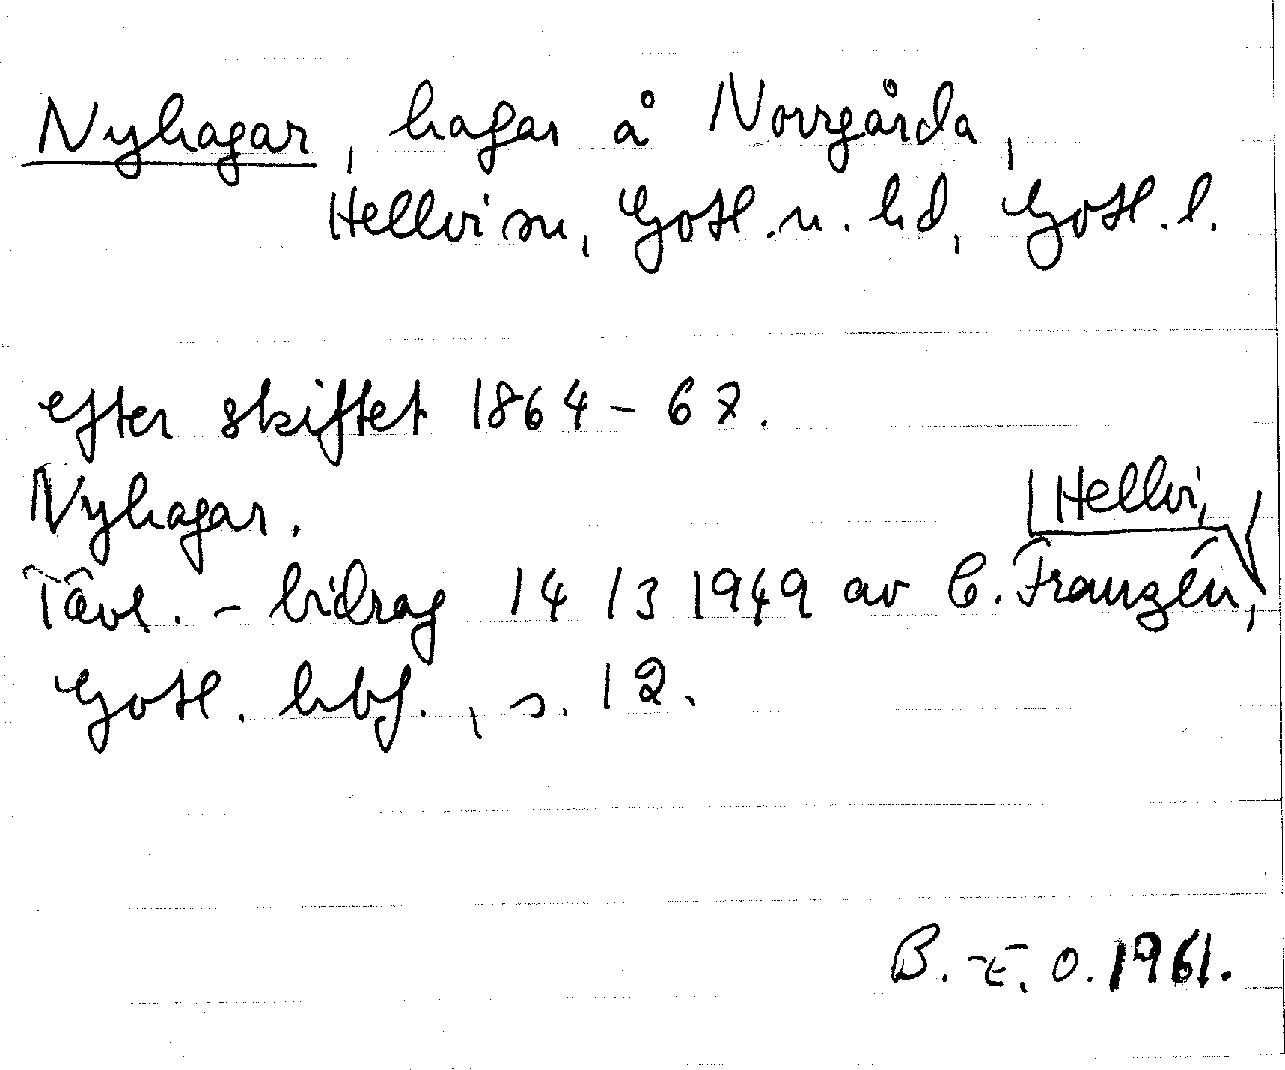 Nyhagar, hagar å Norrgårda,
Hellvi sn, Gotl. n. hd, Gotl. l.
efter skiftet 1864-67.
Nyhagar.
Hellvi,
Tävl.-bidrag 14/3 1949 av C. Franzén,
Gotl. hbf., s. 12.
B. E. O. 1961.